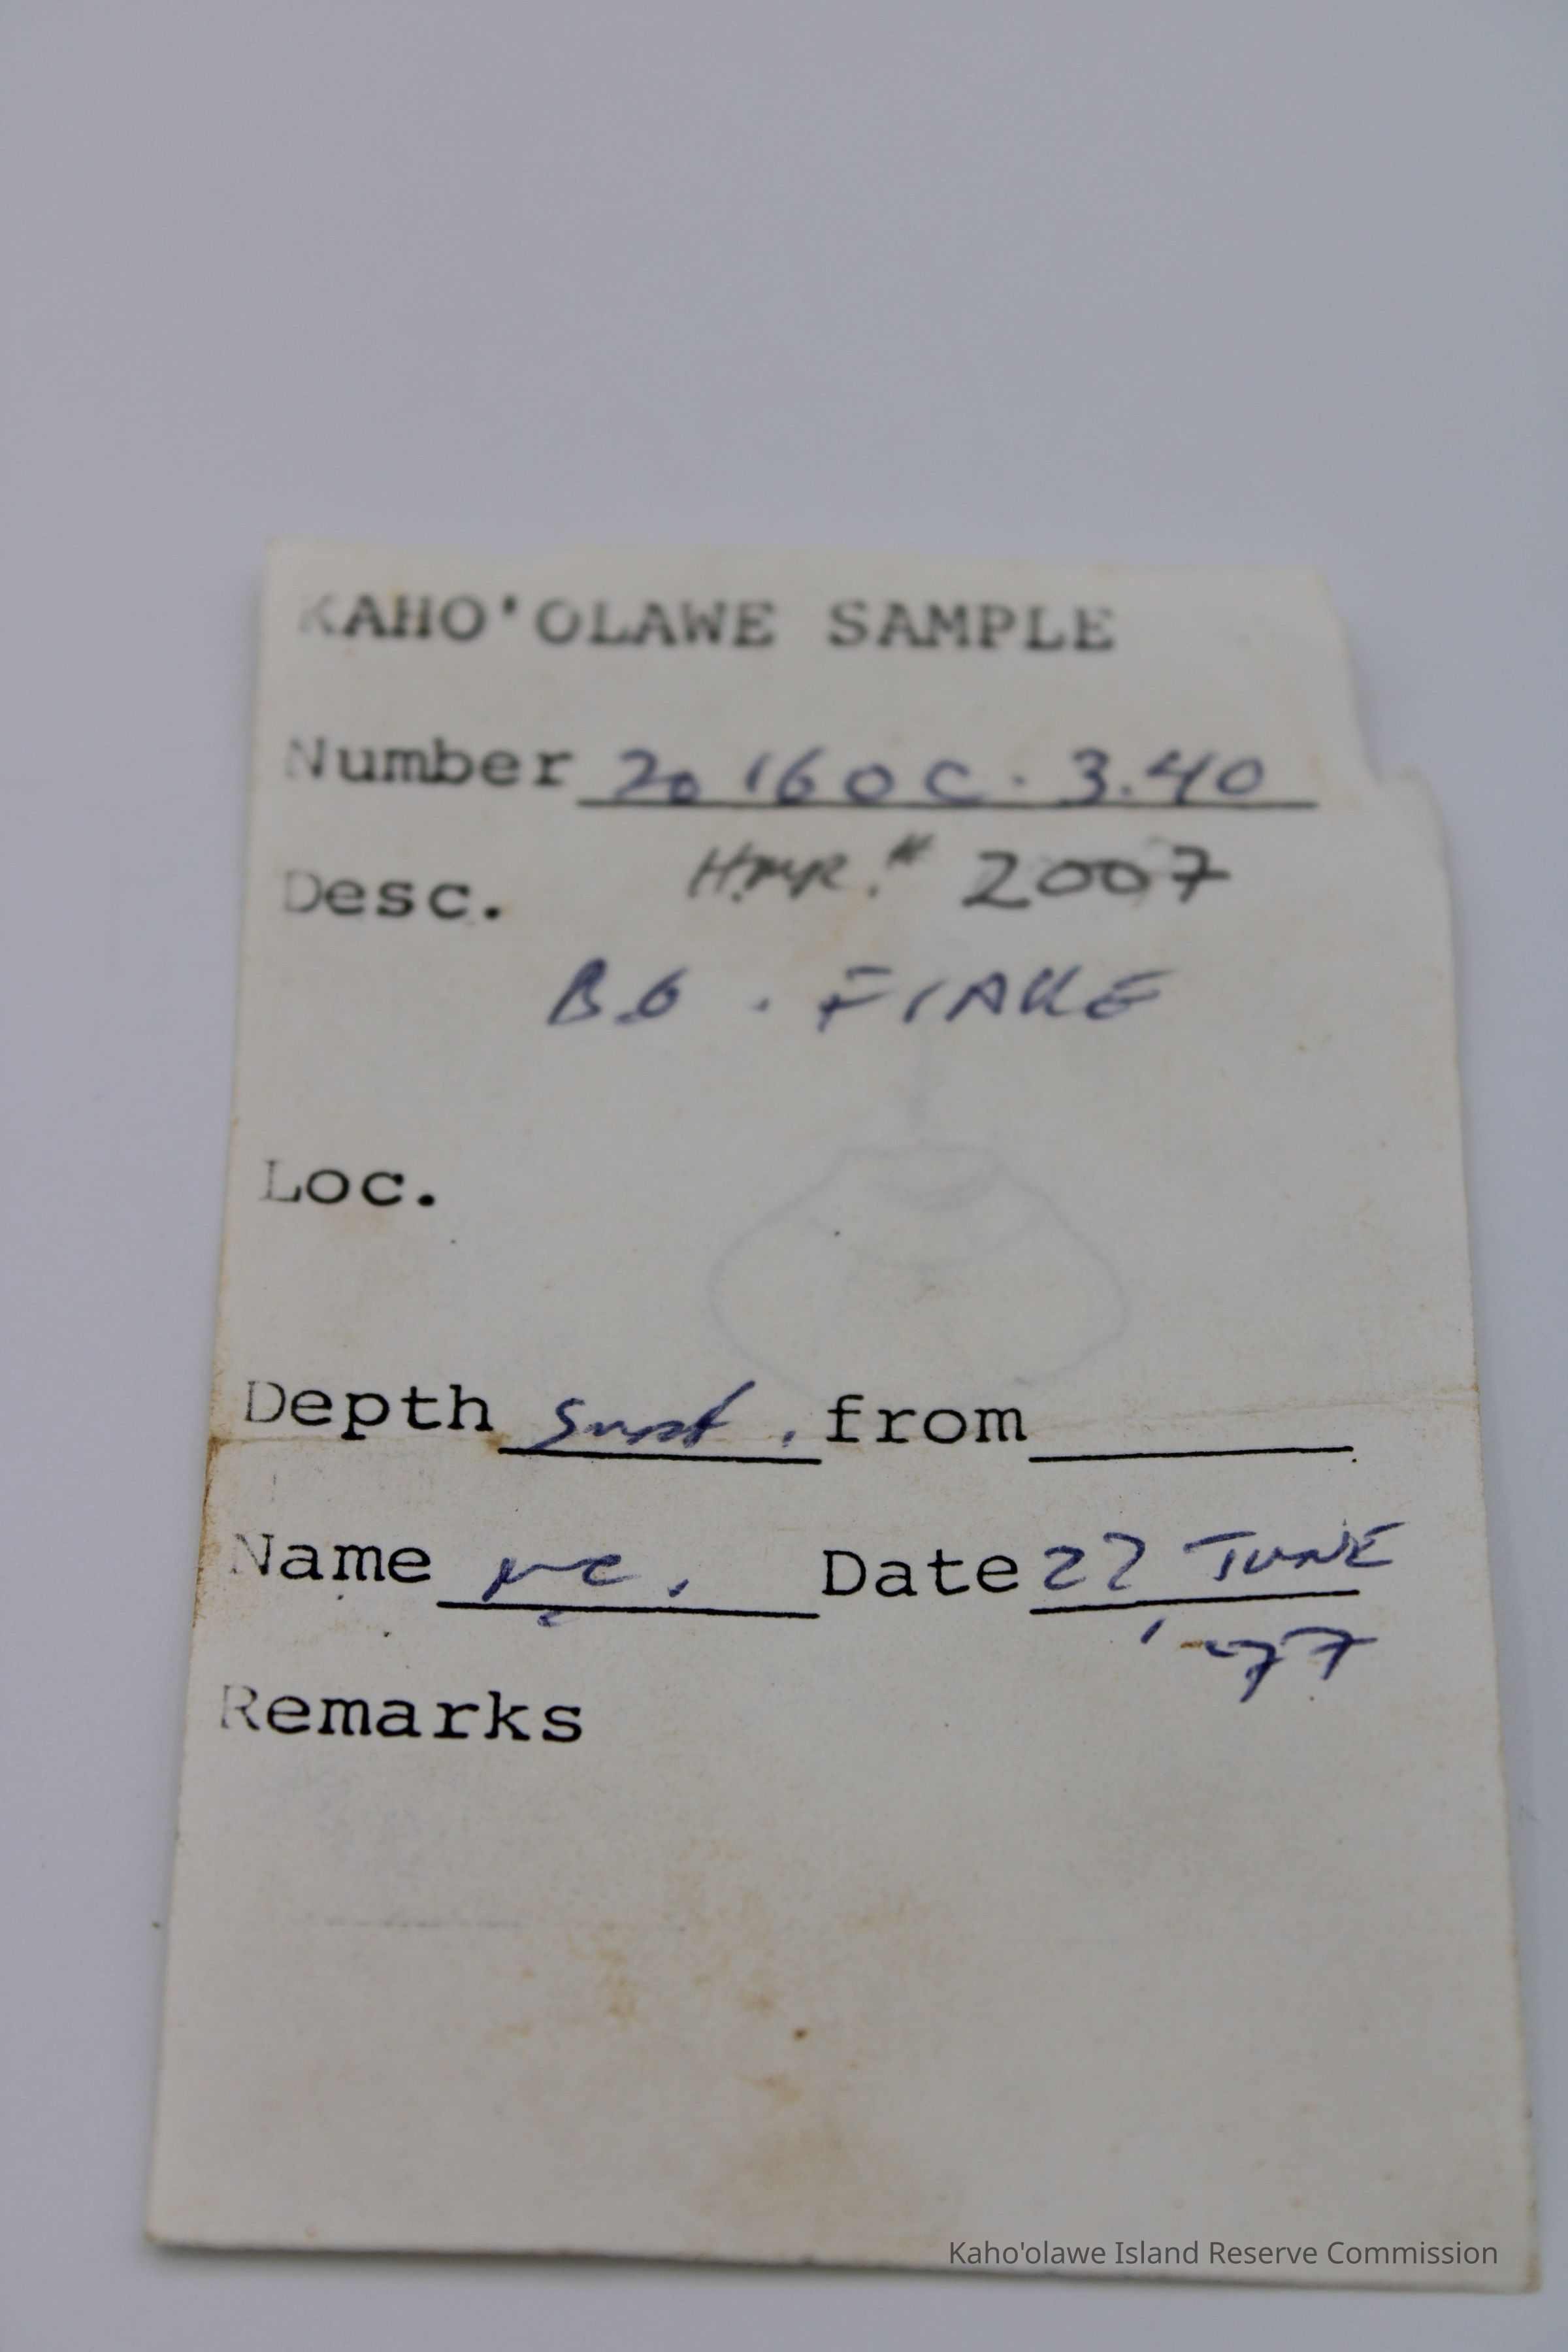 KAHO'OLAWE SAMPLE
Number 20160C. 3.40
Desc. H.M.R. # 2007
B.G. FLAKE
Loc.
Depth Surf. from
Name Date 22 JUNE
'77
Remarks
Kaho'olawe Island Reserve Commission